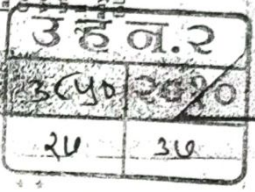 उहन.२
३८५० २०१०
२५ ३७